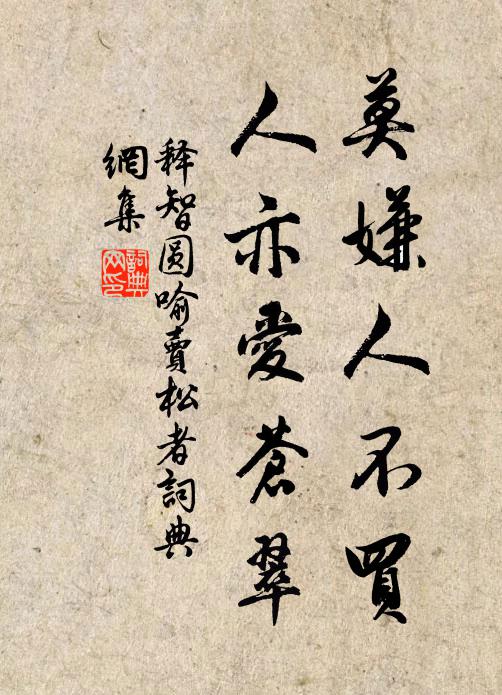 莫嫌人不買
人亦愛蒼翠
释智圆喻賣松者詞典
網集
詞典
网印